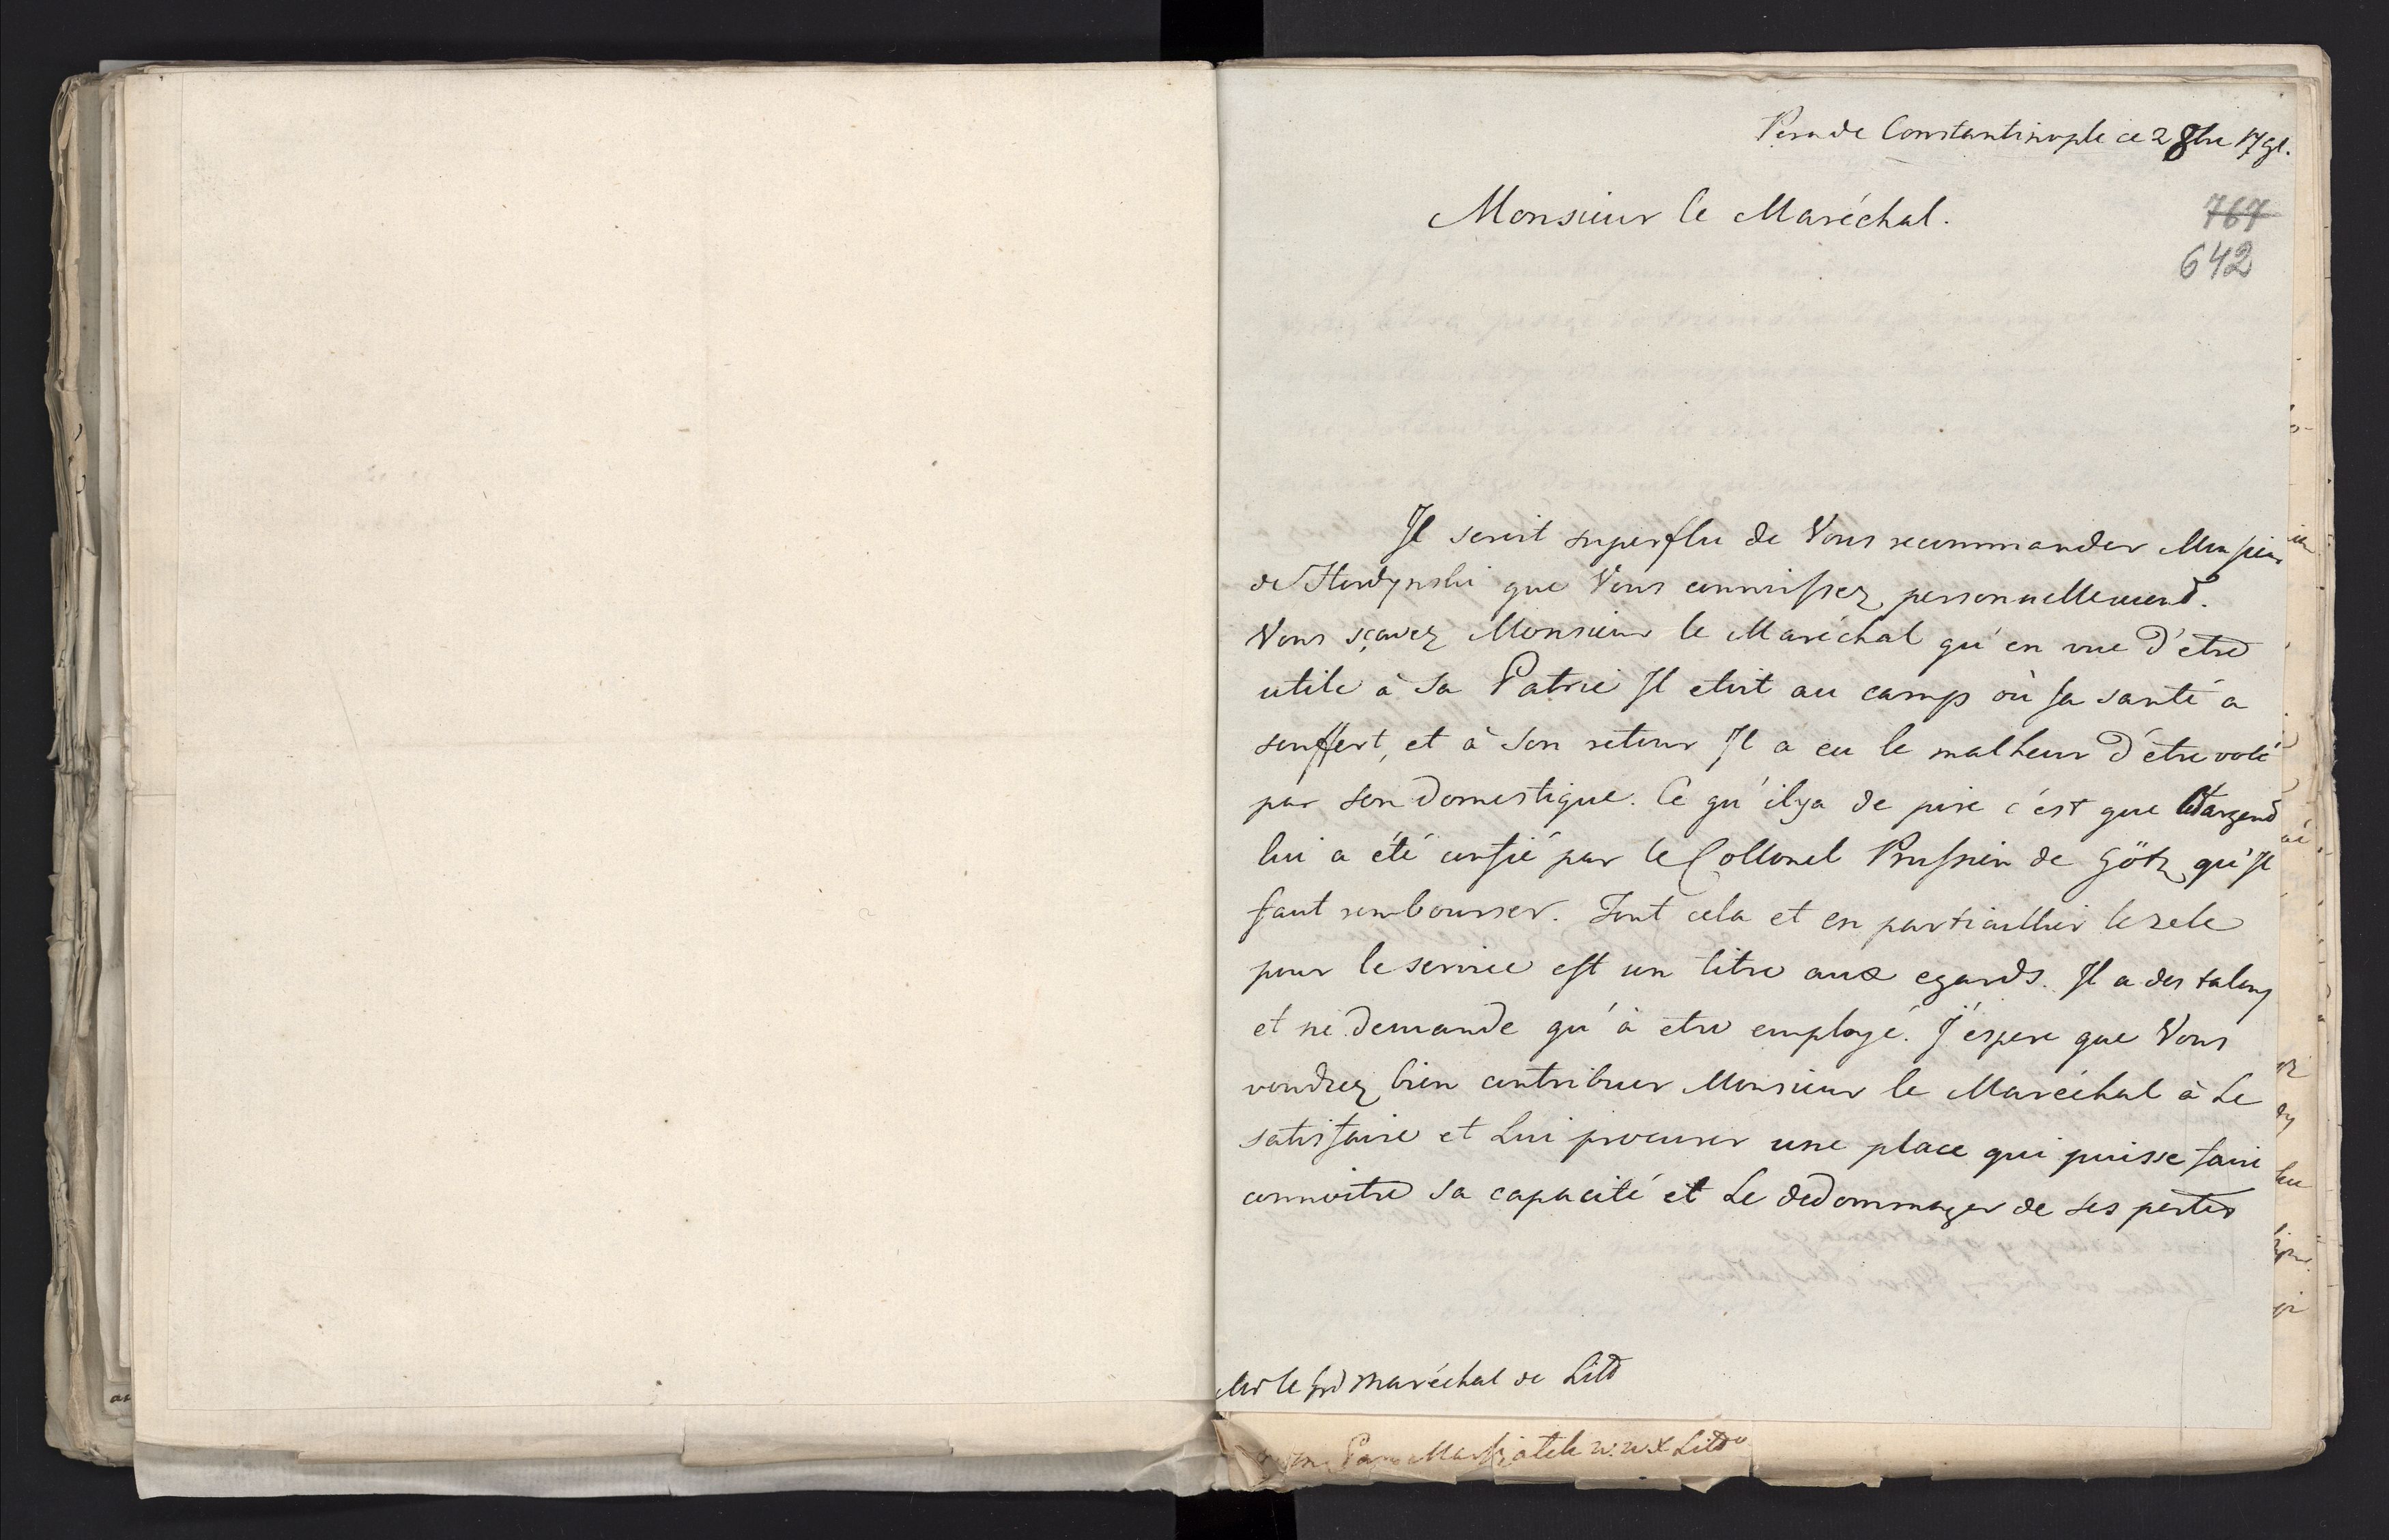 Pera de Constantinople ce 2 8bre 1791.
Monsieur le Maréchal.
767
642
Il seroit superflu de Vous recommander Monsieur
de Hordynski que Vous connoissez personnellement.
Vous sçavez Monsieur le Maréchal qu'en vue d'etre
utile à Sa Patrie Il etoit au camp où sa santé a
souffert, et à Son retour Il a eu le malheur d'etre volé
par Son domestique. Ce qu'il y a de pire c'est que cet argent
lui a été confié par le Collonel Prussien de Götz qu'Il
faut rembourser. Tout cela et en particullier le zele
pour le service est un titre aux egards. Il a des talens
et ne demande qu'à etre employé. J'espere que Vous
voudrez bien contribuer Monsieur le Maréchal à Le
satisfaire et Lui procurer une place qui puisse faire
connoitre sa capacité et Le dedommager de Ses pertes
Mr le Grd Maréchal de Litd
Pan Marszałek w. w. X Litto